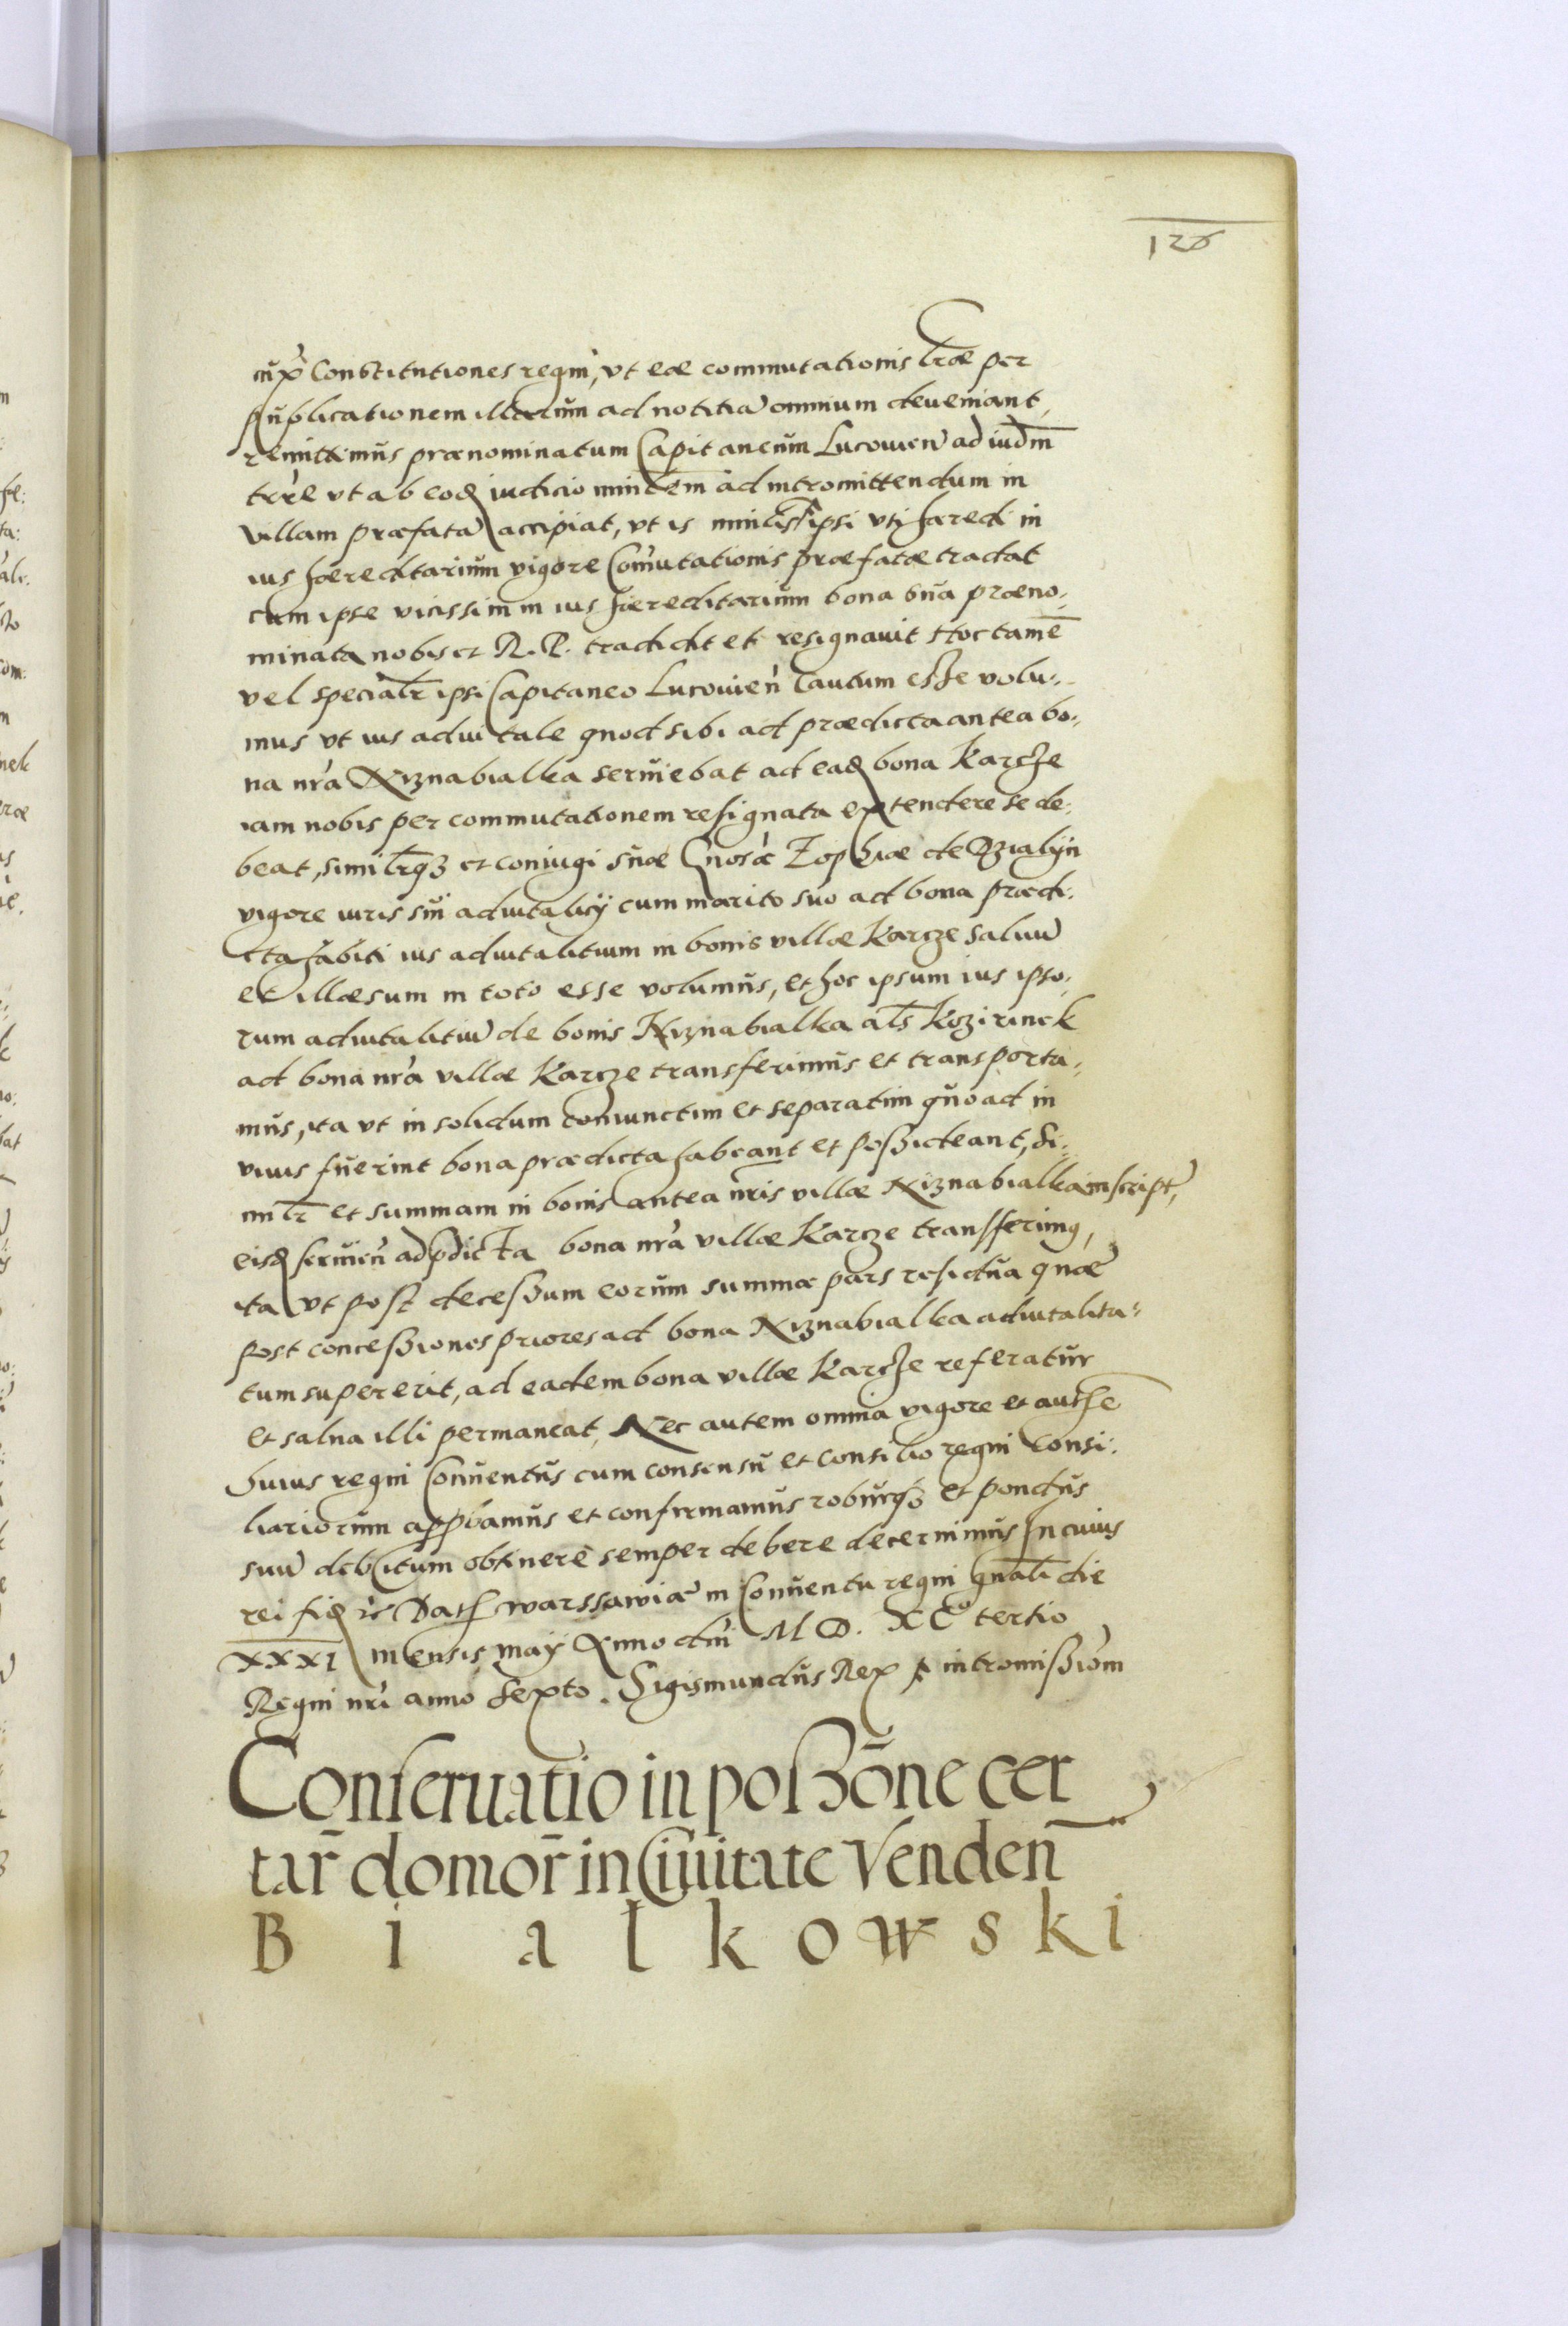 126
iux̄ Constitutiones regni, vt eæ commutationis lræ per
publicationem illarum ad notitiā omnium deueniant,
remittimus prænominatum Capitaneum Lucouien̄ ad iudm̄
trr̄e vt ab eoq̨ iudicio min̄lem ad intromittendum in
villam præfatā accipiat, vt is minlis ipsi vti hæredi in
ius hæreditarium vigore Com̄utationis præfatæ tradat
cum ipse vicissim in ius hæreditarium bona sua præno-
minata nobis et R. P. tradidit et resignauit Hoc tamē
vel specialr̄ ipsi Capitaneo Lucouien̄ cautum esse volu-
mus vt ius aduitale quod sibi ad prædicta antea bo-
na nr̄a Niznabialka seruiebat ad eaq̨ bona Karcze
iam nobis per commutationem resignata extendere se de-
beat, similr̄qȝ et coniugi suæ Gnosæ Zophiæ de Dzialÿn
vigore iuris sui aduitalicÿ cum marito suo ad bona prædi-
cta habiti ius aduitalitium in bonis villæ Karcze saluū
et illæsum in toto esse volumus, et hoc ipsum ius ipso-
rum aduitalitiū de bonis Niznabialka als̄ Kozirinek
ad bona nr̄a villæ Karcze transferimus et transporta-
mus, ita vt in solidum coniunctim et separatim quoad in
viuis fuerint bona prædicta habeant et possideant, Si-
milr̄ et summam in bonis antea nr̄is villæ Niznabialka inscript̄,
eisq̨ seruien̄ ad pdicta bona nr̄a villæ Karcze transferimꝰ,
ita vt post decessum eorum summæ pars residua quæ
post concessiones priores ad bona Niznabialka aduitalita-
tum supererit, ad eadem bona villæ Karcze referatur
et salua illi permaneat, Nec autem omnia vigore et authē
huius regni Conuentus cum consensu et consilio regni Consi-
liariorum appbamus et confirmamus roburqȝ et pondus
suū debitum obtinere semper debere decernimus In cuius
rei fiq̨ ꝛc Dath Warssawiæ in Conuentu regni gnāli die
XXXI mensis maÿ Anno dn̄i M D. XCo tertio
Regni nr̄i anno sexto. Sigismundus Rex p intromissiōm
Conseruatio in poſsōne cer
tar̄ domor̄ in Ciuitate Venden̄
Bialkowski